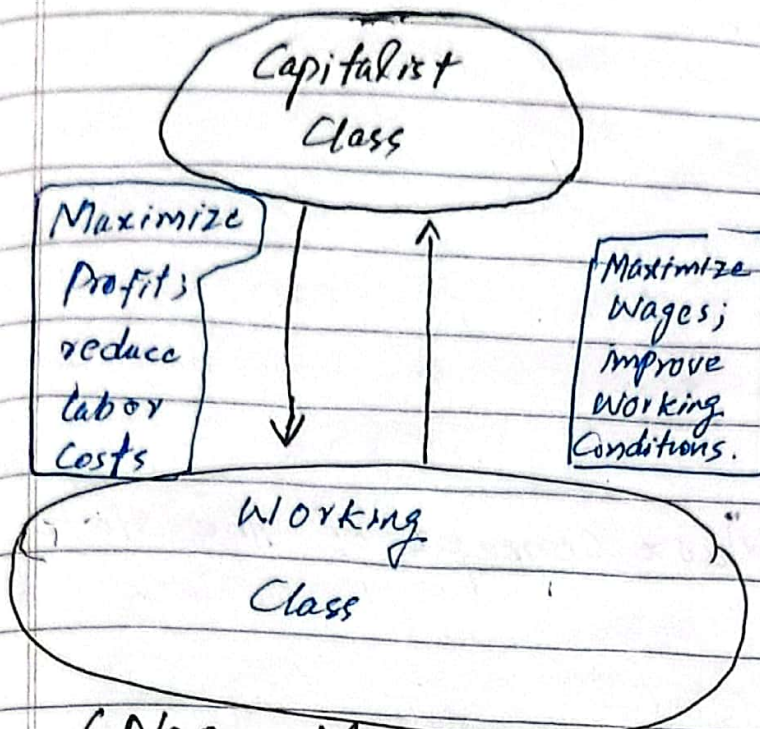 Capitalist
Class
Maximize
Profits
reduce
labor
Costs
Maximize
Wages;
improve
Working
Conditions.
Working
Class